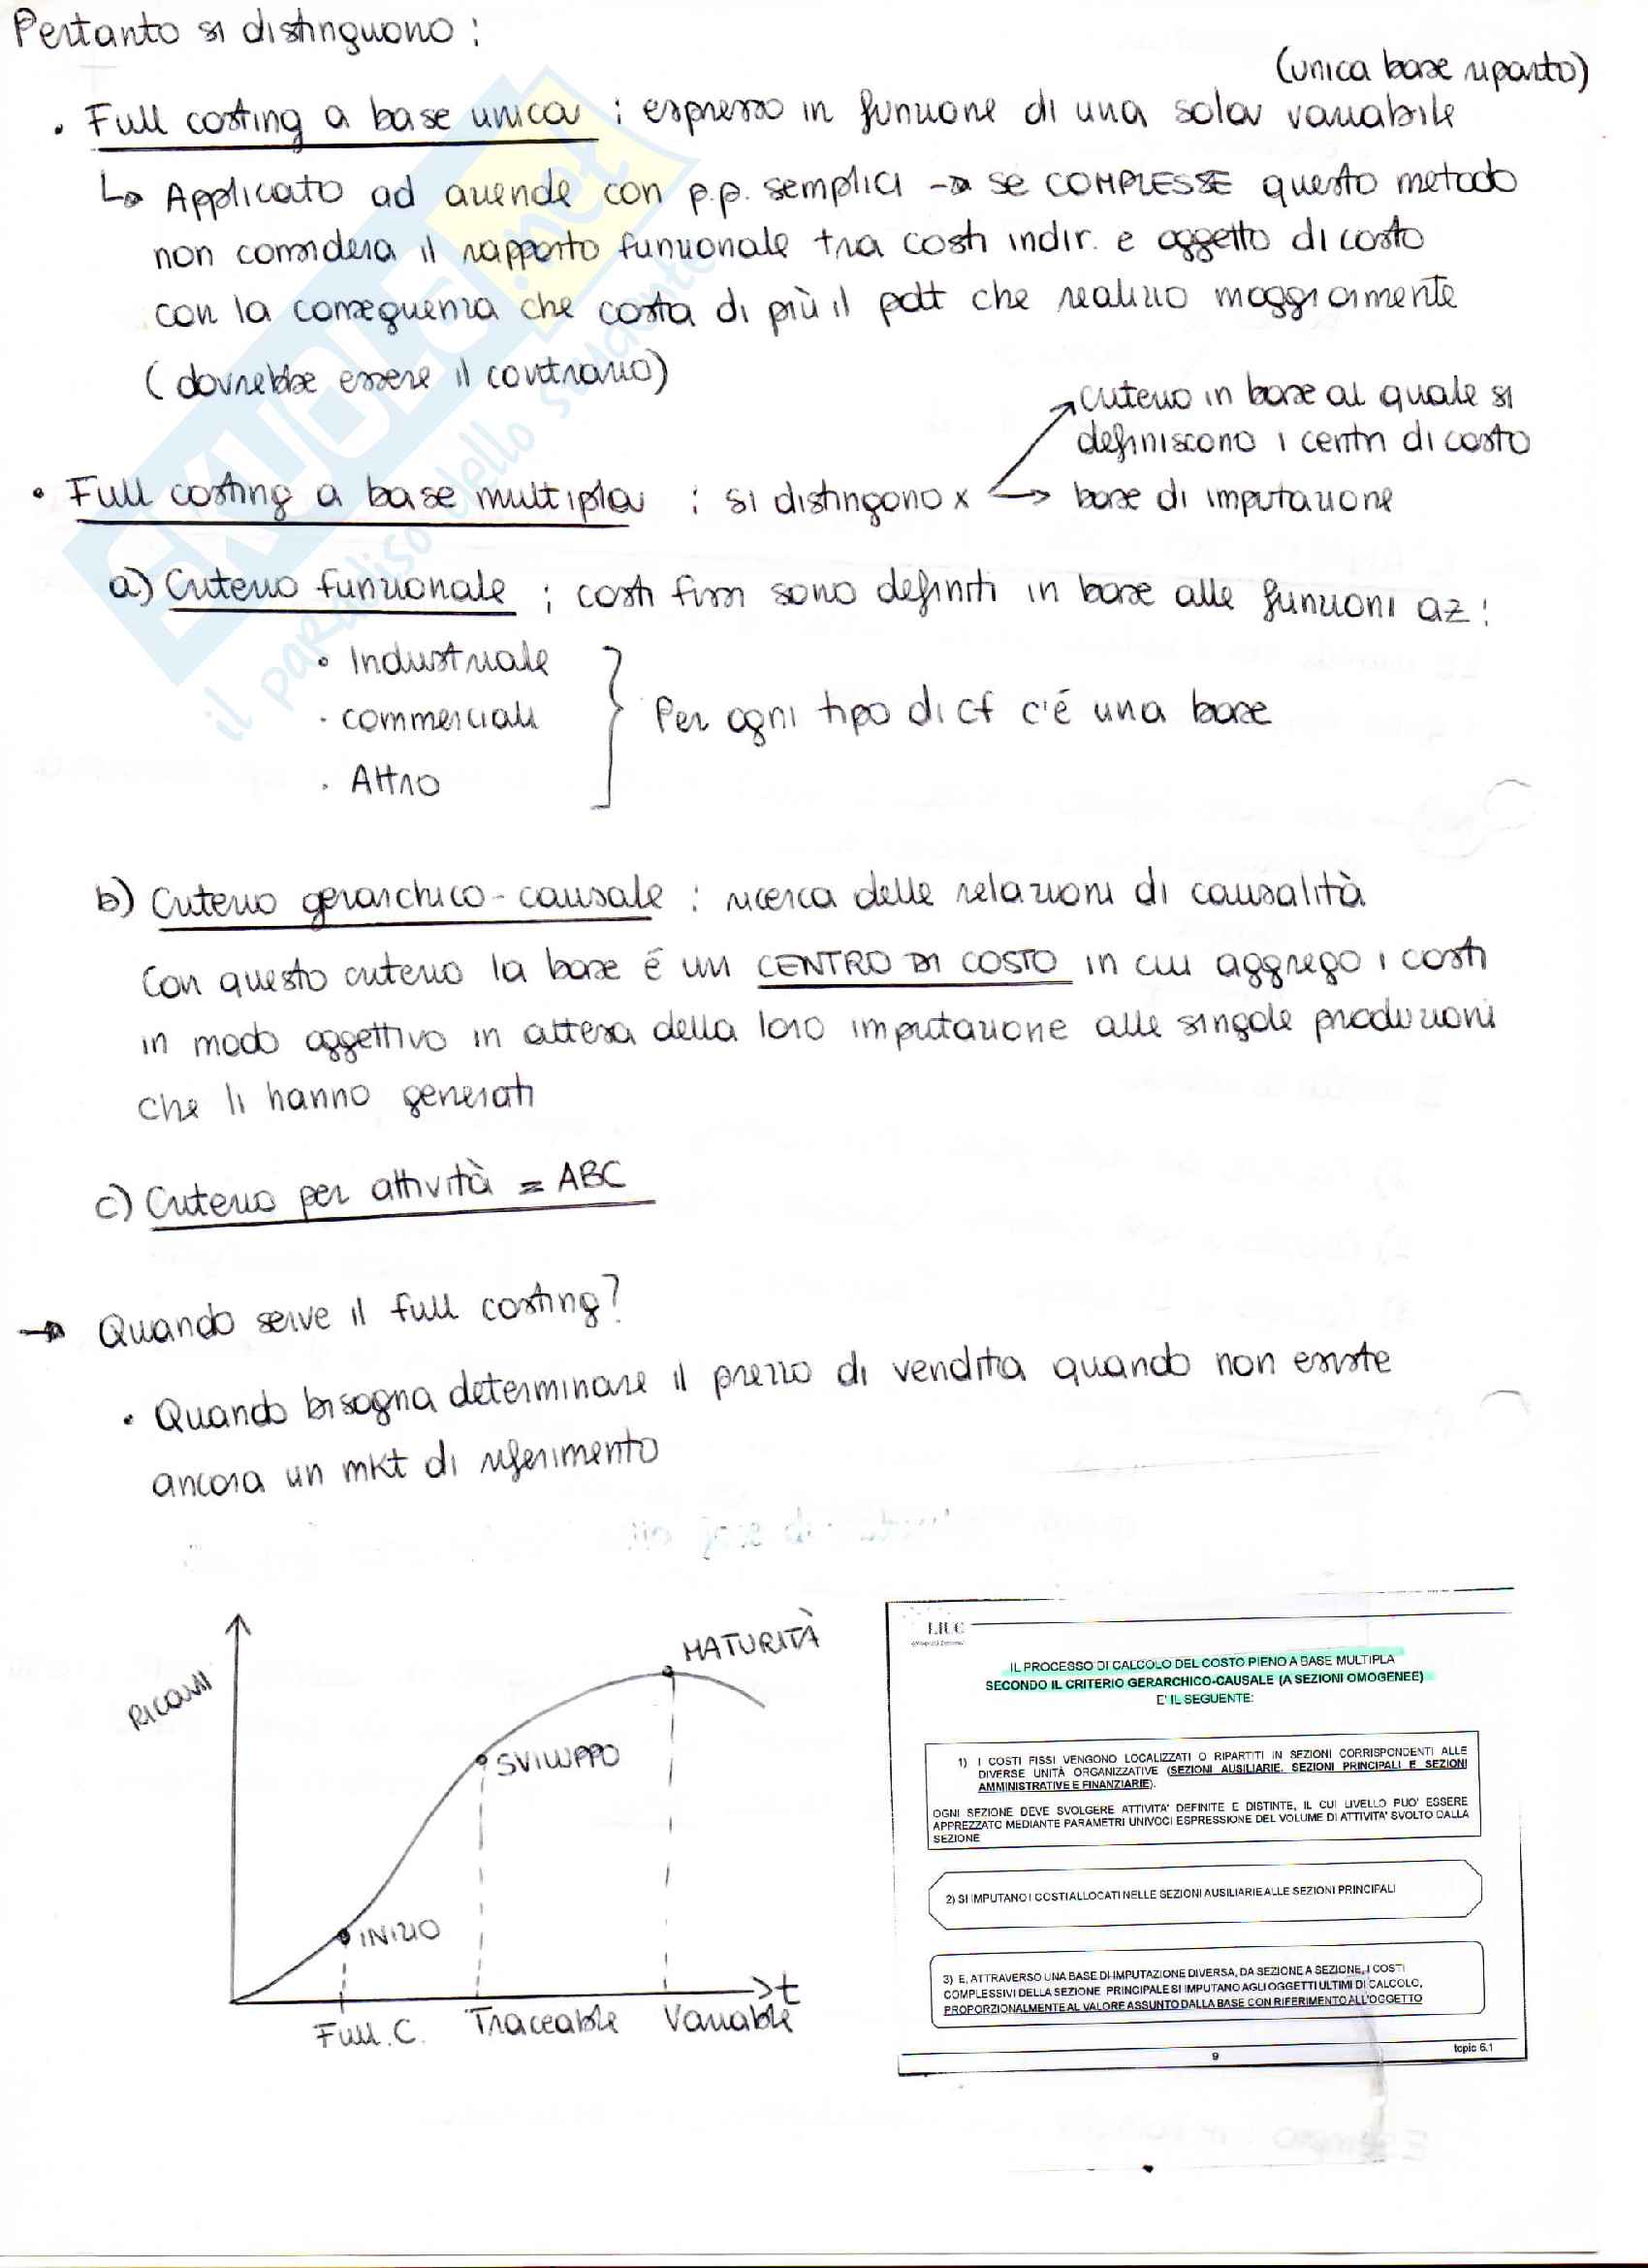 Pertanto si distinguono :
(unica base riparto)
• Full costing a base unica : espresso in funzione di una sola variabile
↳ Applicato ad aziende con p.p. semplici → se COMPLESSE questo metodo
non considera il rapporto funzionale tra costi indir. e oggetto di costo
con la conseguenza che costa di più il pdt che realizzo maggiormente
( dovrebbe essere il contrario)
criterio in base al quale si
definiscono i centri di costo
• Full costing a base multipla : si distingono x → base di imputazione
a) Criterio funzionale ; costi fissi sono definiti in base alle funzioni az :
• Industriale
• commerciali
• Altro
Per ogni tipo di cf c'é una base
b) Criterio gerarchico-causale : ricerca delle relazioni di causalità
Con questo criterio la base é un CENTRO DI COSTO in cui aggrego i costi
in modo oggettivo in attesa della loro imputazione alle singole produzioni
che li hanno generati
c) Criterio per attività = ABC
→ Quando serve il full costing?
• Quando bisogna determinare il prezzo di vendita quando non esiste
ancora un mkt di riferimento
RICAVI
MATURITÀ
SVILUPPO
INIZIO
t
Full. C. Traceable Variable
LIUC
IL PROCESSO DI CALCOLO DEL COSTO PIENO A BASE MULTIPLA
SECONDO IL CRITERIO GERARCHICO-CAUSALE (A SEZIONI OMOGENEE)
E' IL SEGUENTE:
1) I COSTI FISSI VENGONO LOCALIZZATI O RIPARTITI IN SEZIONI CORRISPONDENTI ALLE
DIVERSE UNITÀ ORGANIZZATIVE (SEZIONI AUSILIARIE, SEZIONI PRINCIPALI E SEZIONI
AMMINISTRATIVE E FINANZIARIE).
OGNI SEZIONE DEVE SVOLGERE ATTIVITA' DEFINITE E DISTINTE, IL CUI LIVELLO PUO' ESSERE
APPREZZATO MEDIANTE PARAMETRI UNIVOCI ESPRESSIONE DEL VOLUME DI ATTIVITA' SVOLTO DALLA
SEZIONE
2) SI IMPUTANO I COSTI ALLOCATI NELLE SEZIONI AUSILIARIE ALLE SEZIONI PRINCIPALI
3) E, ATTRAVERSO UNA BASE DI IMPUTAZIONE DIVERSA, DA SEZIONE A SEZIONE, I COSTI
COMPLESSIVI DELLA SEZIONE PRINCIPALE SI IMPUTANO AGLI OGGETTI ULTIMI DI CALCOLO,
PROPORZIONALMENTE AL VALORE ASSUNTO DALLA BASE CON RIFERIMENTO ALL'OGGETTO
9
topic 6.1
SKUOLA.net
il paradiso dello studente